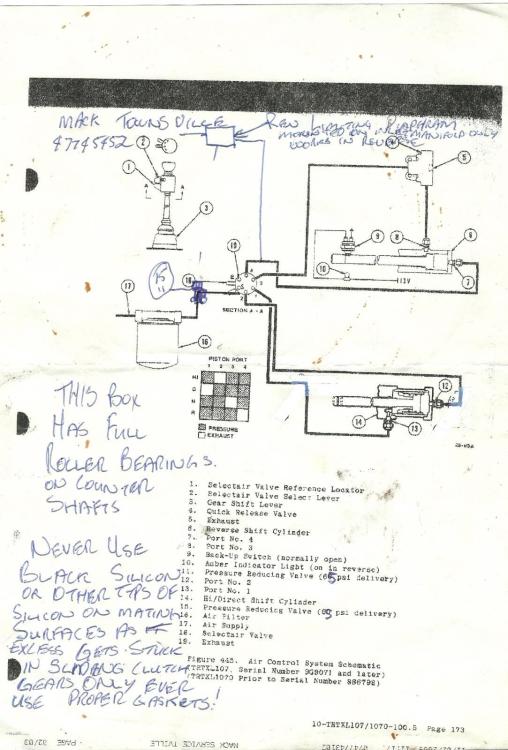 MACK TOWNSVILLE
47745452
REV LIMITING DIAPHRAM
MOUNTED ON INLET MANIFOLD ONLY
WORKS IN REVERSE
2
1
A A
3
5
9
8
6
10
12V
7
19
18
17
SECTION A-A
16
PISTON PORT
1 2 3 4
HI
D
N
R
PRESSURE
EXHAUST
12
14
13
THIS BOX
HAS FULL
ROLLER BEARINGS.
ON COUNTER
SHAFTS
NEVER USE
BLACK SILICON
OR OTHER TYPS OF
SILICON ON MATING
SURFACES AS IT
EXCESS GETS STUCK
IN SLADING CLUTCH
GEARS ONLY EVER
USE PROPER GASKETS!
1. Selectair Valve Reference Locator
2. Selectair Valve Select Lever
3. Gear Shift Lever
4. Quick Release Valve
5. Exhaust
6. Reverse Shift Cylinder
7. Port No. 4
8. Port No. 3
9. Back-Up Switch (normally open)
10. Amber Indicator Light (on in reverse)
11. Pressure Reducing Valve (65 psi delivery)
12. Port No. 2
13. Port No. 1
14. Hi/Direct Shift Cylinder
15. Pressure Reducing Valve (85 psi delivery)
16. Air Filter
17. Air Supply
18. Selectair Valve
19. Exhaust
Figure 445. Air Control System Schematic
(TRTXL107, Serial Number 9G8071 and later)
(TRTXL1070 Prior to Serial Number 8S6792)
10-TRTXL107/1070-100.5 Page 173
MACK SERVICE TVILLE
PAGE 02/03